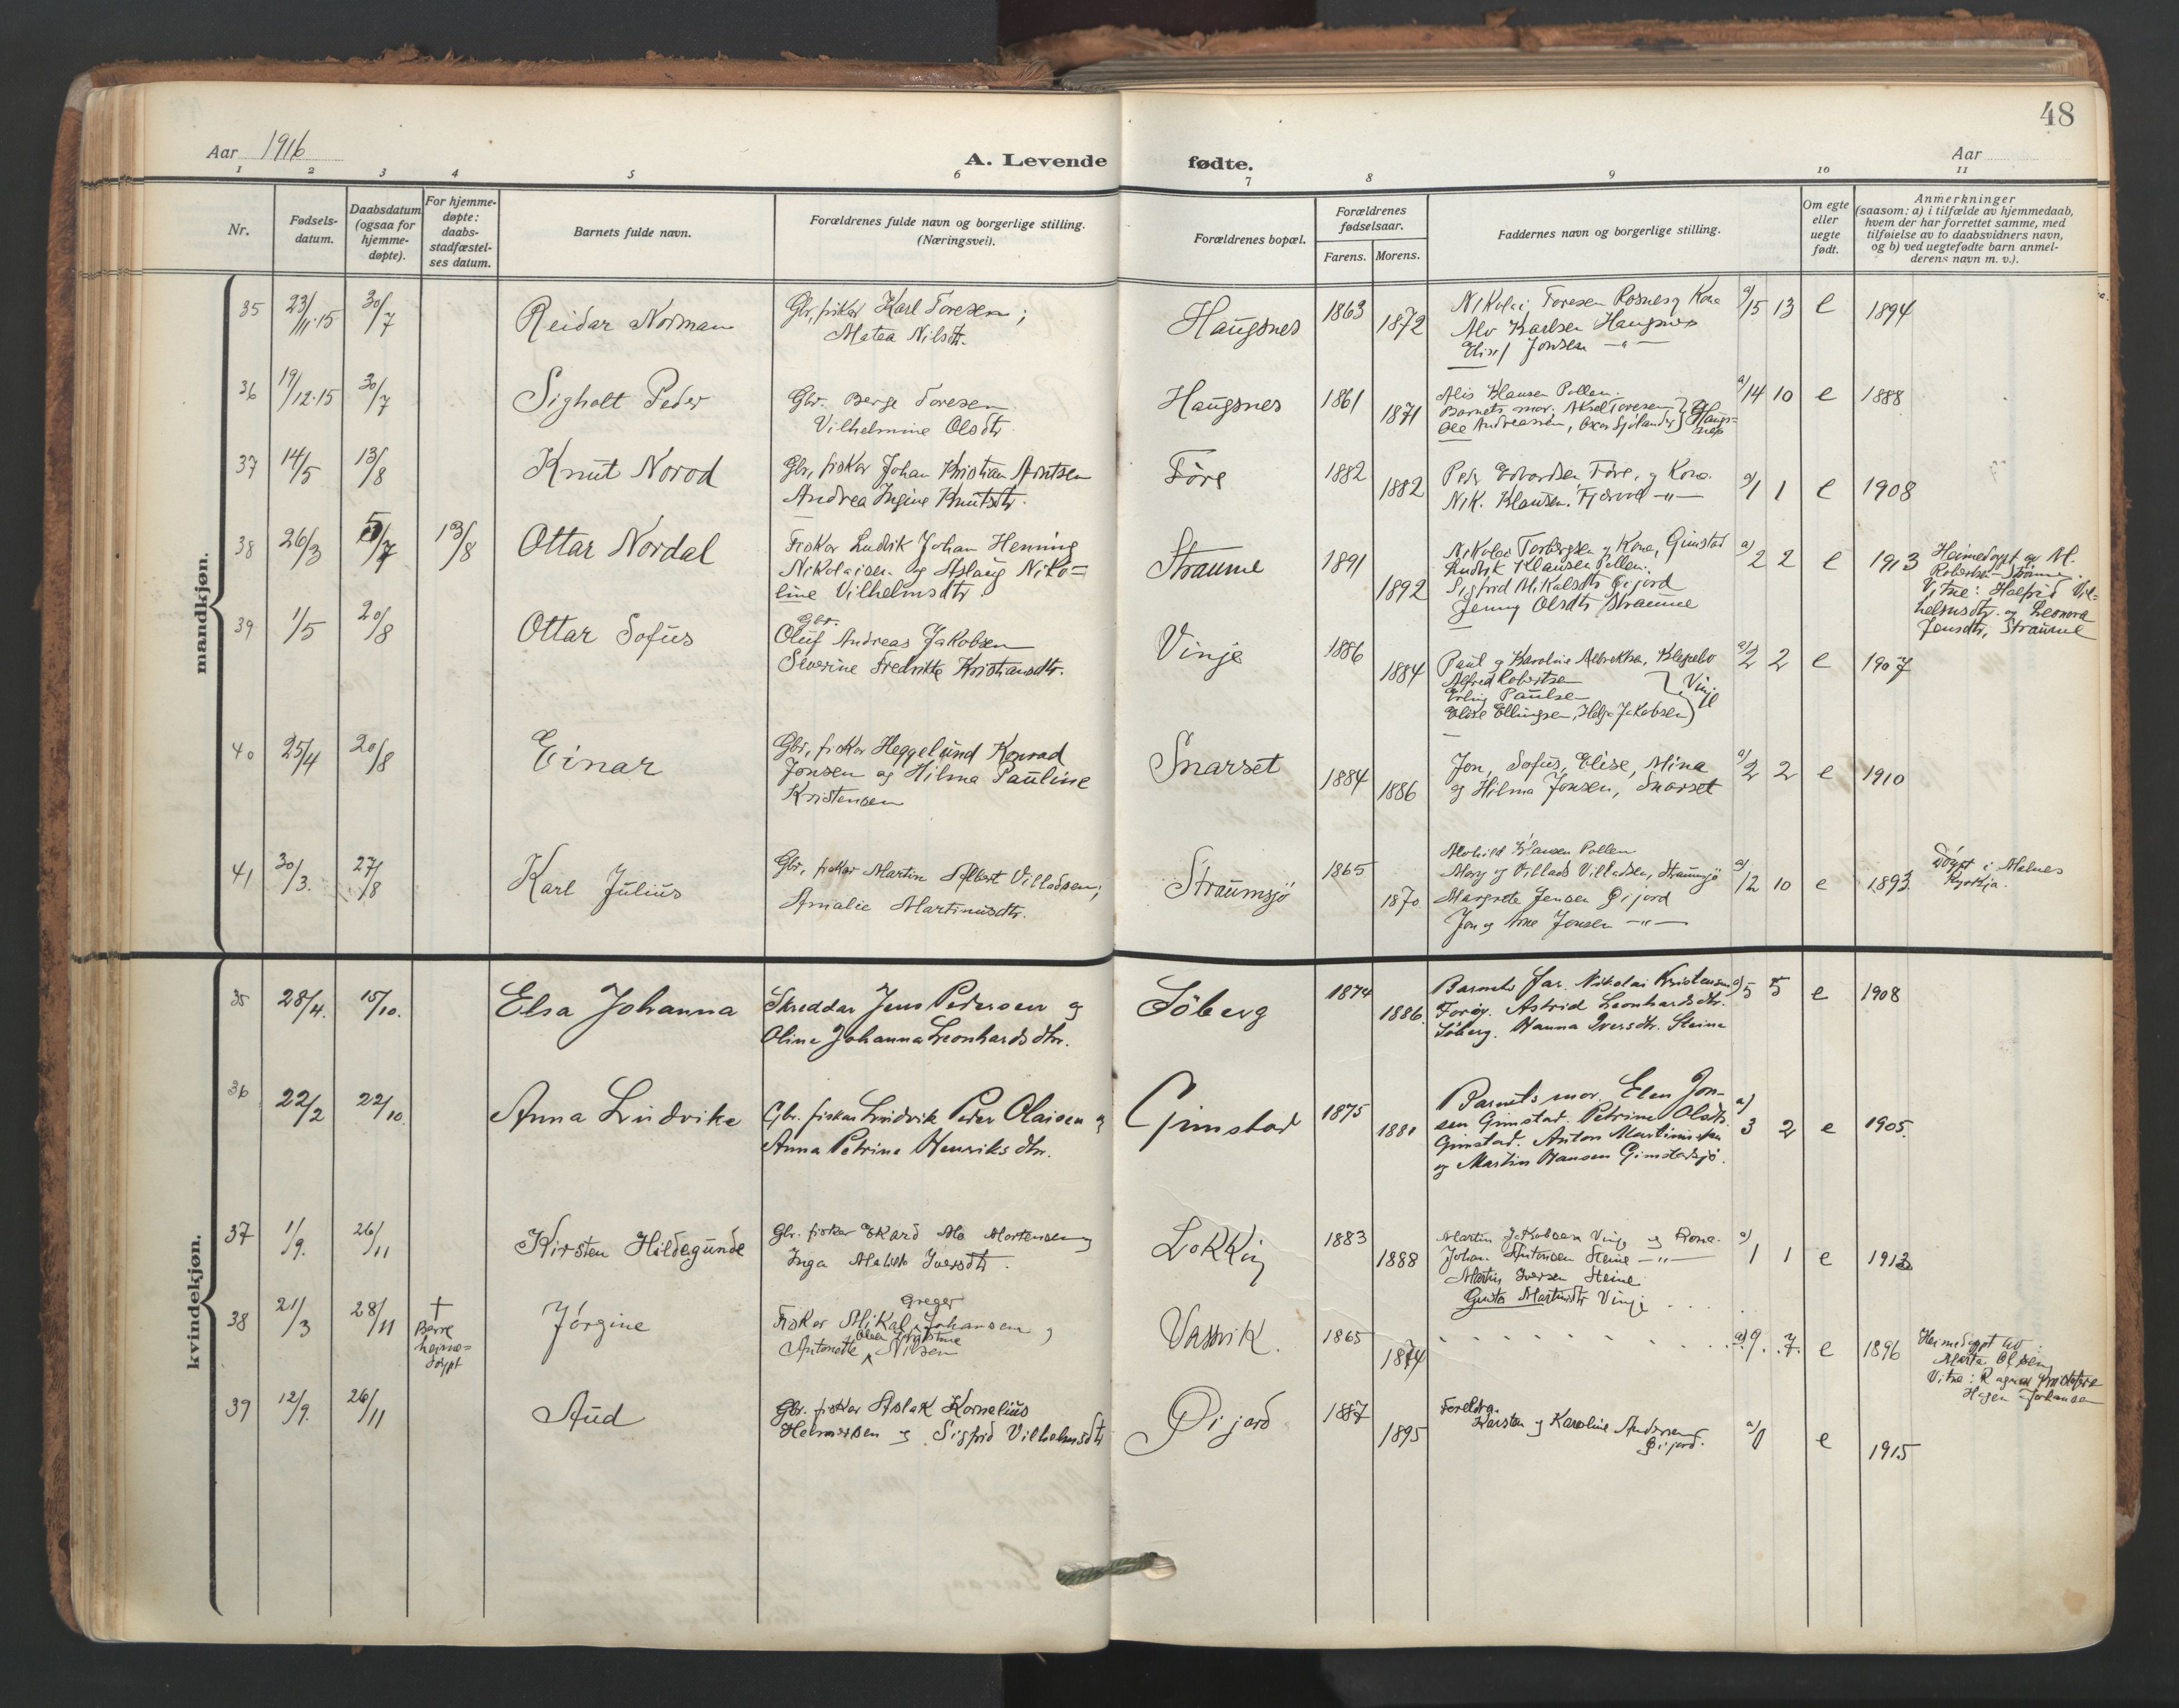 48
Aar 1916
A. Levende fødte.
Aar
1 2 3 4 5 6 7 8 9 10 11
Nr.
Fødsels-
datum.
Daabsdatum
(ogsaa for
hjemme-
døpte).
For hjemme-
døpte:
daabs-
stadfæstel-
ses datum.
Barnets fulde navn.
Forældrenes fulde navn og borgerlige stilling.
(Næringsvei).
Forældrenes bopæl.
Forældrenes
fødselsaar.
Farens. Morens.
Faddernes navn og borgerlige stilling.
Om egte
eller
uegte
født.
Anmerkninger
(saasom: a) i tilfælde av hjemmedaab,
hvem der har forrettet samme, med
tilføielse av to daabsvidners navn,
og b) ved uegtefødte barn anmel-
derens navn m. v.).
mandkjøn.
35 23/11.15 30/7 Reidar Norman
Gbr, fisker Karl Toresen;
Matea Nilsdtr.
Haugsnes 1863 1872
Nikolai Toresen Rosnes og Kona
Alv Karlsen Haugsnes
Elise Jonsen —"—
a/15 13 e 1894
36 19/12.15 30/7 Sigholt Peder
Gbr. Berge Toresen
Vilhelmine Olsdtr
Haugsnes 1861 1871
Alis Klausen Pollen.
Barnets mor; Aksel Toresen
Ole Andreassen, Oscar Sjølander } Haugs=
nes
a/14 10 e 1888
37 14/5 13/8 Knut Norod
Gbr, fisker Johan Kristian Arntsen
Andrea Ingine Knutsdtr.
Føre 1882 1882
Peder Edvardsen Føre, og Kona.
Nik. Klausen. Fjærvoll —"—
a/1 1 e 1908
38 26/3 5/7 13/8 Ottar Nordal
Fisker Ludvik Johan Henning
Nikolaisen og Aslaug Niko=
line Vilhelmsdtr
Straume 1891 1892
Nikolai Torbergsen og Kona, Gimstad
Ludvik Klausen Pollen.
Sigfrid Mikalsdtr Øijord
Jenny Olsdtr Straume
a) 2 2 e 1913
Heimedøypt av M.
Robertsen Straume.
Vitne: Halfrid Vil=
helmsdtr. og Leonora
Jensdtr, Straume
39 1/5 20/8 Ottar Sofus
Gbr.
Oluf Andreas Jakobsen
Severine Fredrikke Kristiansdtr.
Vinje 1886 1884
Paul og Karoline Albrektsen, Klepebo
Alfred Robertsen
Erling Paulsen
Elise Ellingsen, Helga Jakobsen } Vinje
a/2 2 e 1907
40 25/4 20/8 Einar
Gbr, fisker Heggelund Konrad
Jonsen og Hilma Pauline
Kristensen
Snarset 1884 1886
Jon, Sofus, Elise, Mina
og Hilma Jonsen, Snarset
a/2 2 e 1910
41 30/3. 27/8 Karl Julius
Gbr, fisker Martin Albert Villadsen;
Amalie Martinusdtr.
Straumsjö 1865 1870
Klausen Pollen
Mary og Villads Villadsen, Straumsjö
Margrete Jensen Øijord
Jon og Arne Jonsen —"—
a/12 10 e 1893
Döypt i Malnes
Kyrkja.
kvindekjøn.
35 28/4. 15/10. Elsa Johanna
Skreddar Jens Pedersen og
Oline Johanna Leonhardsdtr.
Söberg 1874 1886.
Barnets far. Nikolai Kristensen
Forøy. Astrid Leonhardsdtr.
Söberg. Hanna Iversdtr. Steine
a) 5 5 e 1908
36 22/2 22/10 Anna Ludvike
Gbr. fisker Ludvik Peder Olaisen og
Anna Petrine Henriksdtr.
Gimstad 1875 1881
Barnets mor. Elen Jon-
sen Gimstad. Petrine Olsdtr.
Gimstad. Anton Martinussen
og Martin Hansen Gimstadsjö.
a) 3 2 e 1905.
37 1/9. 26/11 Kirsten Hildegunde
Gbr. fisker Ekard Mo Mortensen og
Inga Iversdtr.
Lokkin 1883 1888
Martin Jakobsen Vinje og Kona.
Johan Antonsen Steine —"—
Martin Iversen Steine
Gusta Martinsdtr Vinje
a) 1 1 e 1913
38 21/3 28/11 † Berre
heime=
døypt
Jørgine
Fisker Mikal Greger Johansen og
Antonette Olea Jørgine Nilsen
Vassvik. 1865 1874
a) 9. 7. e 1896
Heimedøypt av:
Marta Olsen
Vitne: Ragna Kristofa
Hagen Johansen
39 12/9. 26/11 Aud
Gbr. fisker Aslak Kornelius
Helmersen og Sigfrid Vilhelmsdtr
Øijord 1887 1895
Foreldra.
Karsten og Karoline Andersen
Øijord.
a/0 e 1915